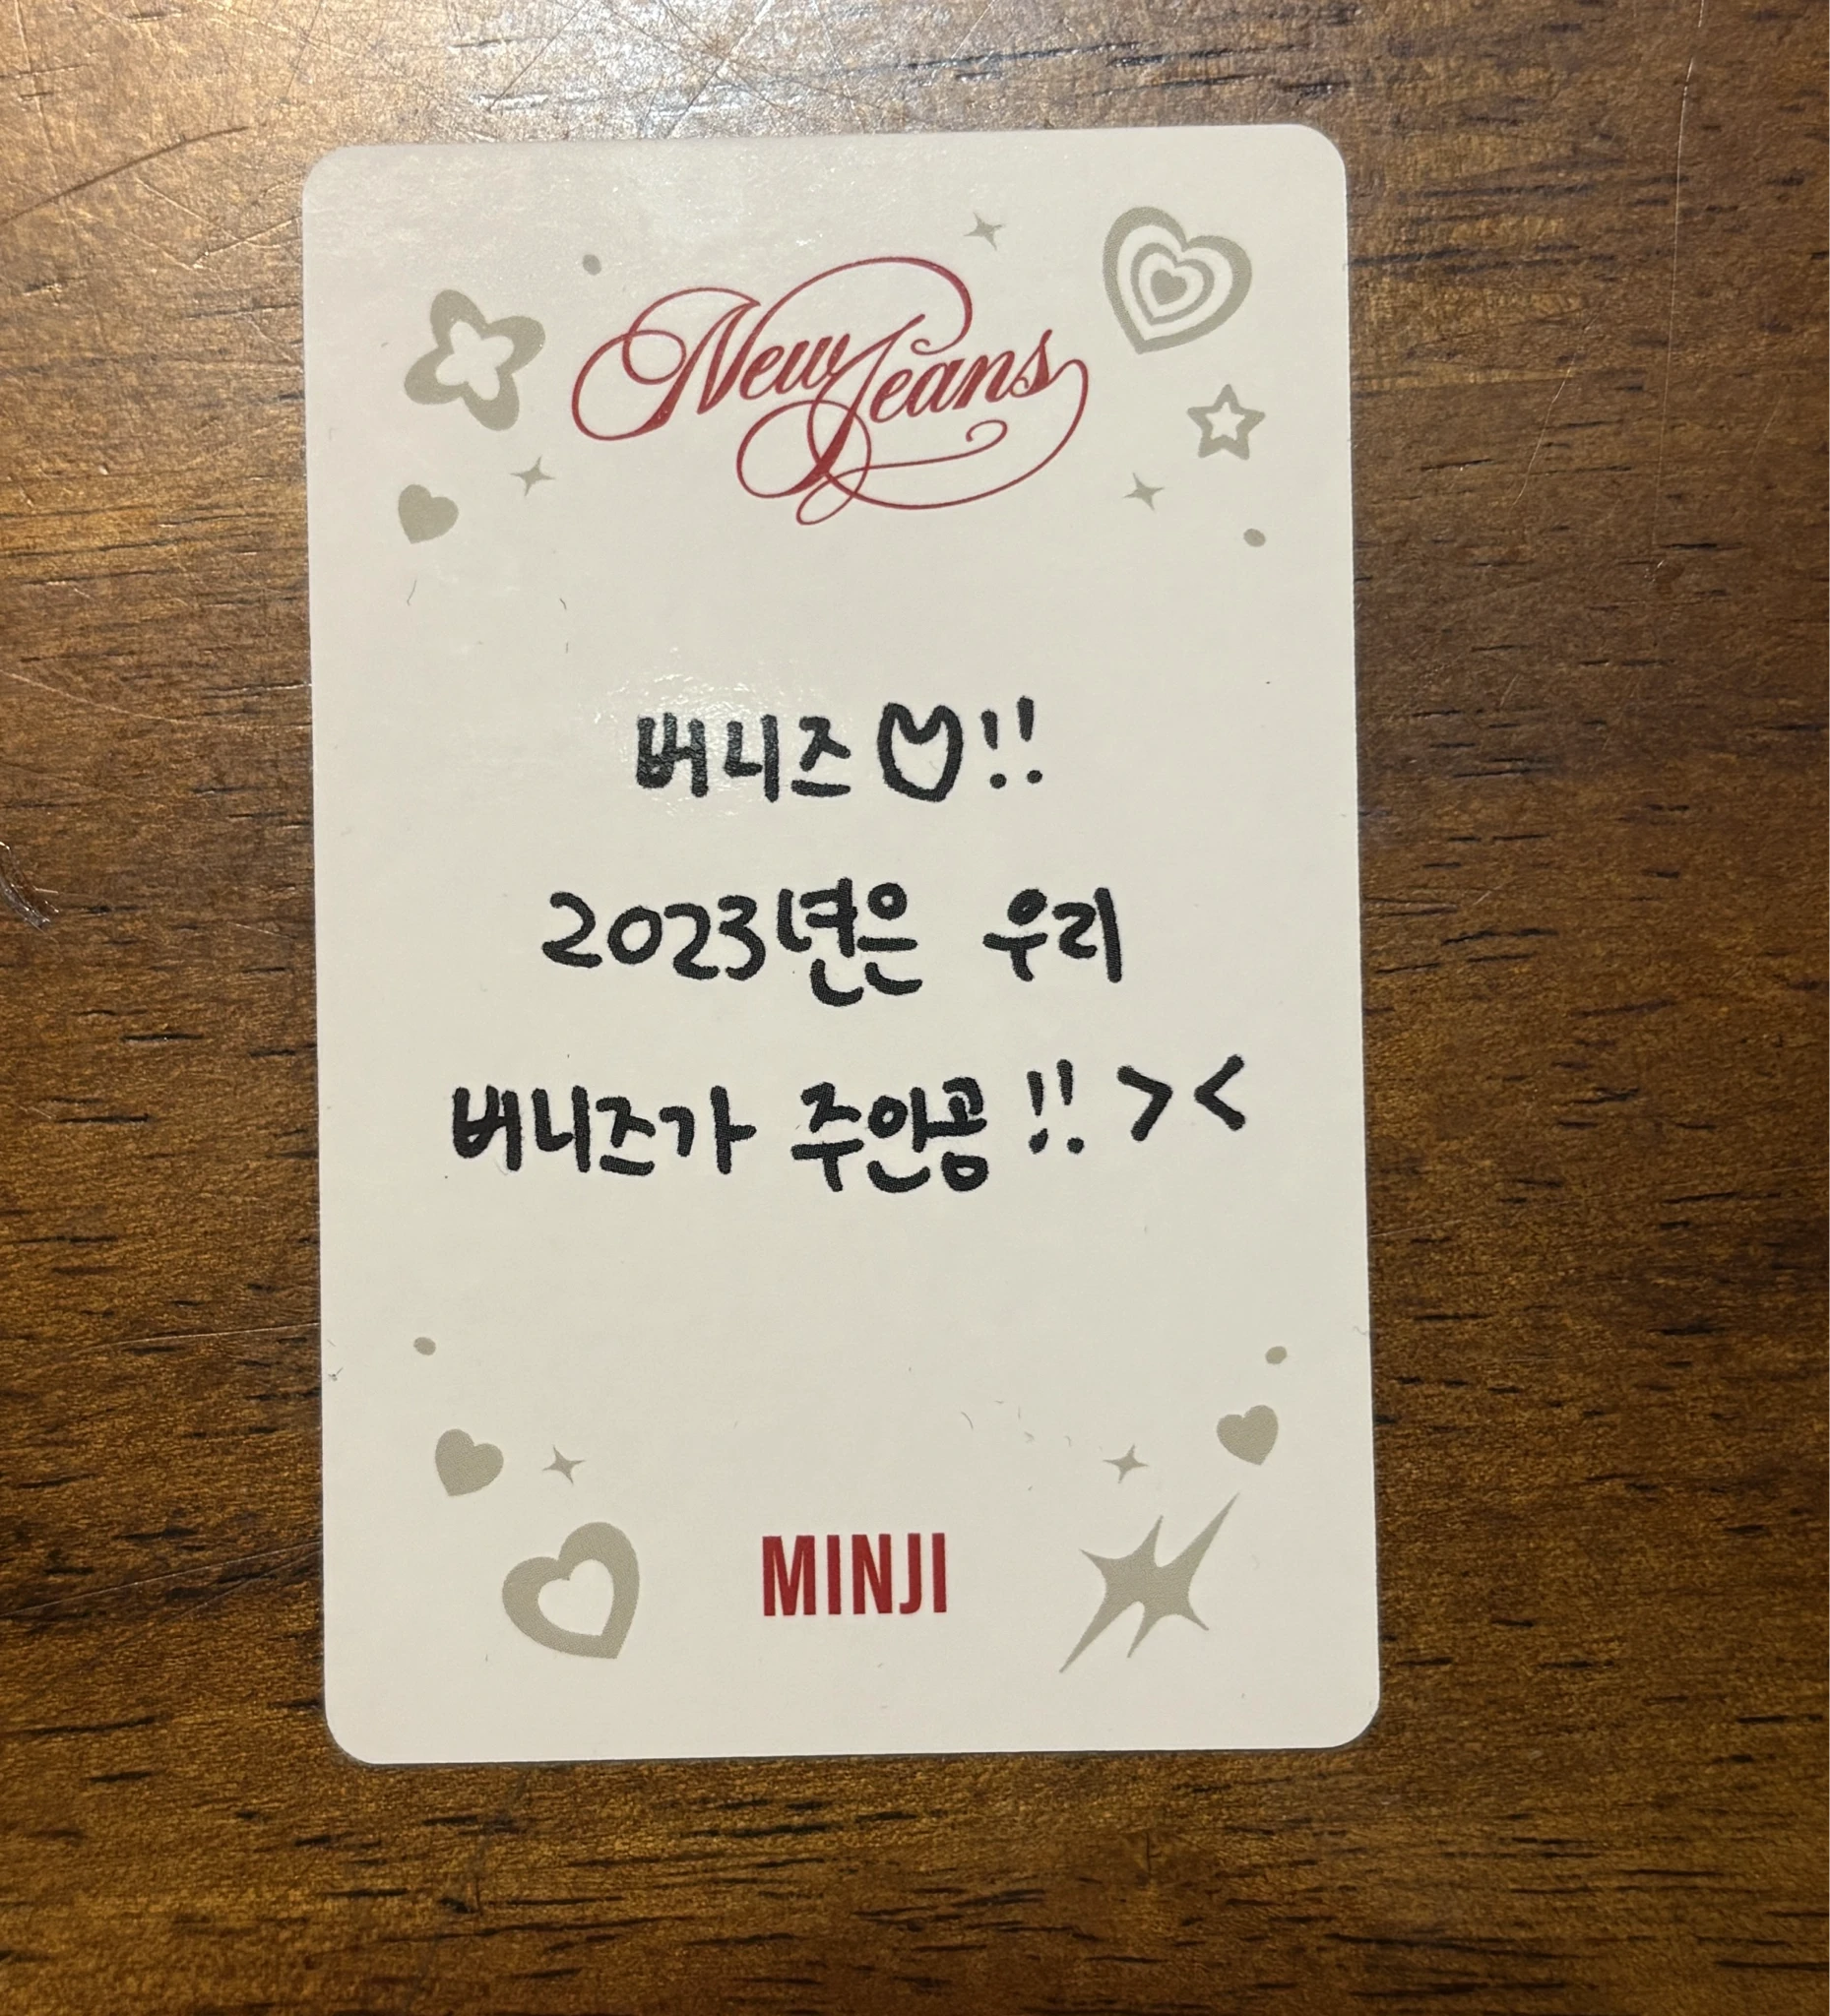 NewJeans
버니즈!!
2023년은 우리
버니즈가 주인공!! ><
MINJI